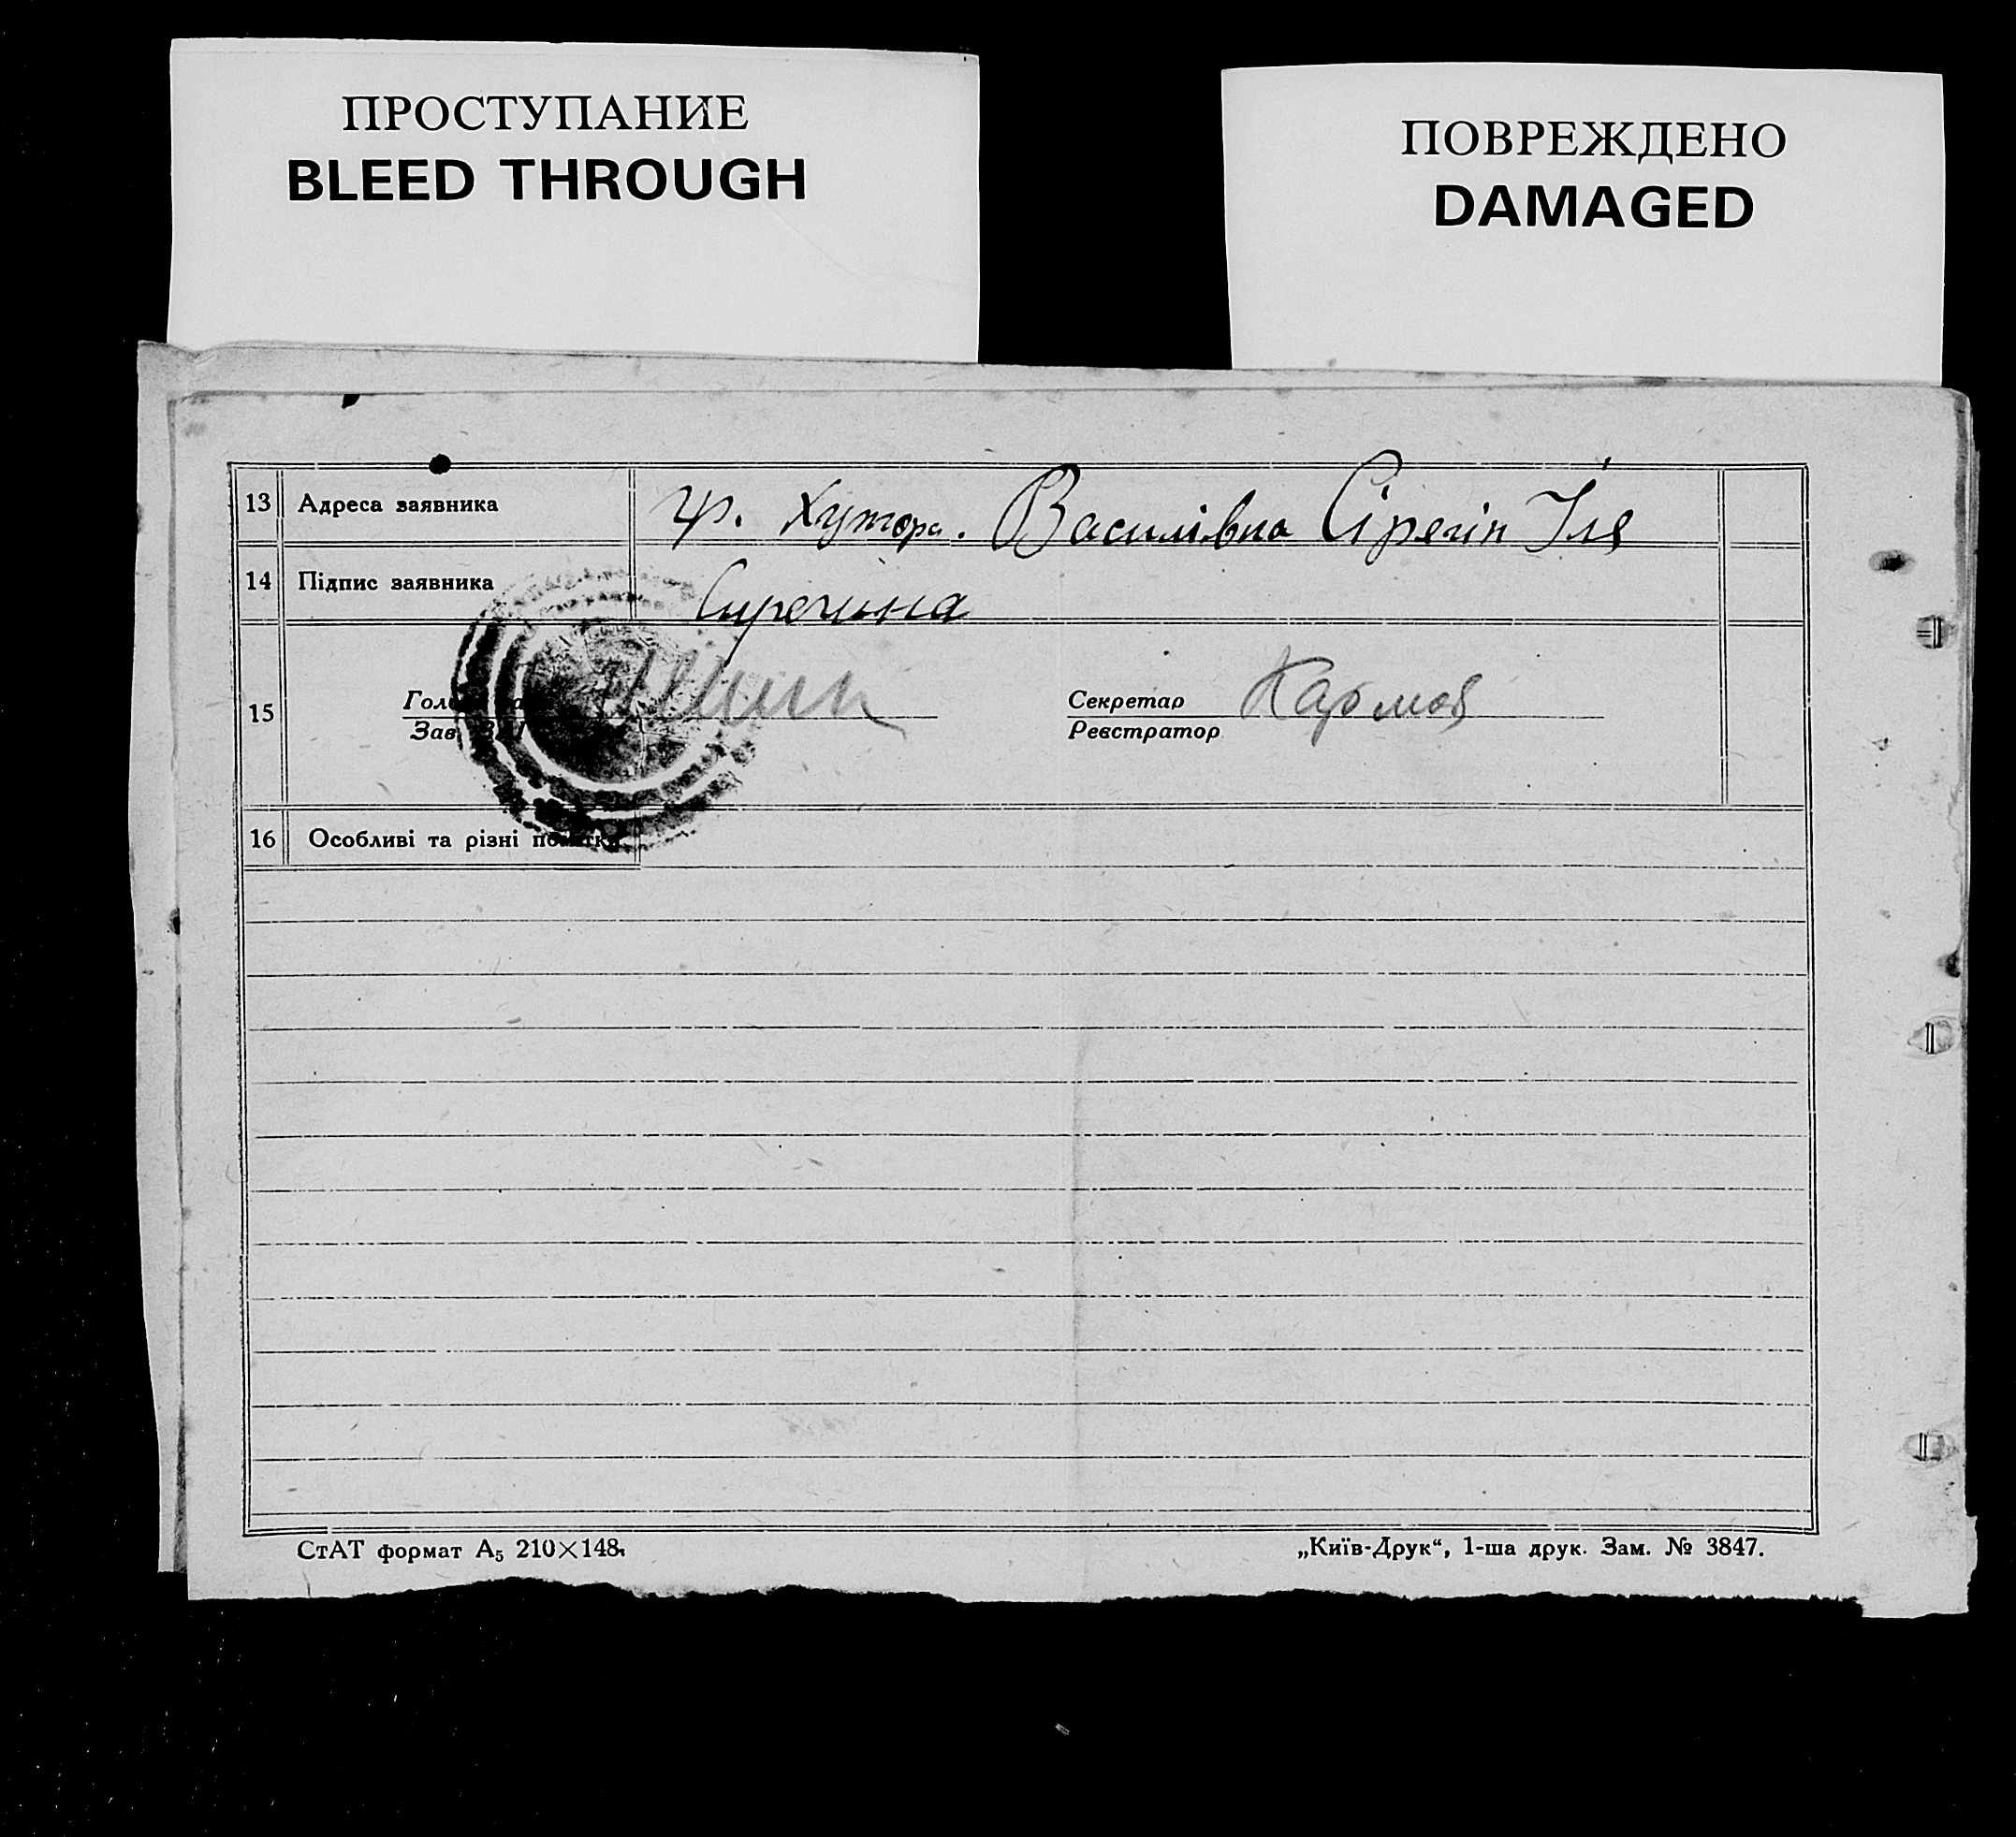 ПРОСТУПАНИЕ
BLEED THROUGH
ПОВРЕЖДЕНО
DAMAGED
13 Адреса заявника гр. Хутора. Василівна Сірегін Іля
14 Підпис заявника Сирегина
15
Секретар
Реєстратор
16 Особливі та різні
СтАТ формат А₅ 210×148.
„Київ-Друк“, 1-ша друк. Зам. № 3847.